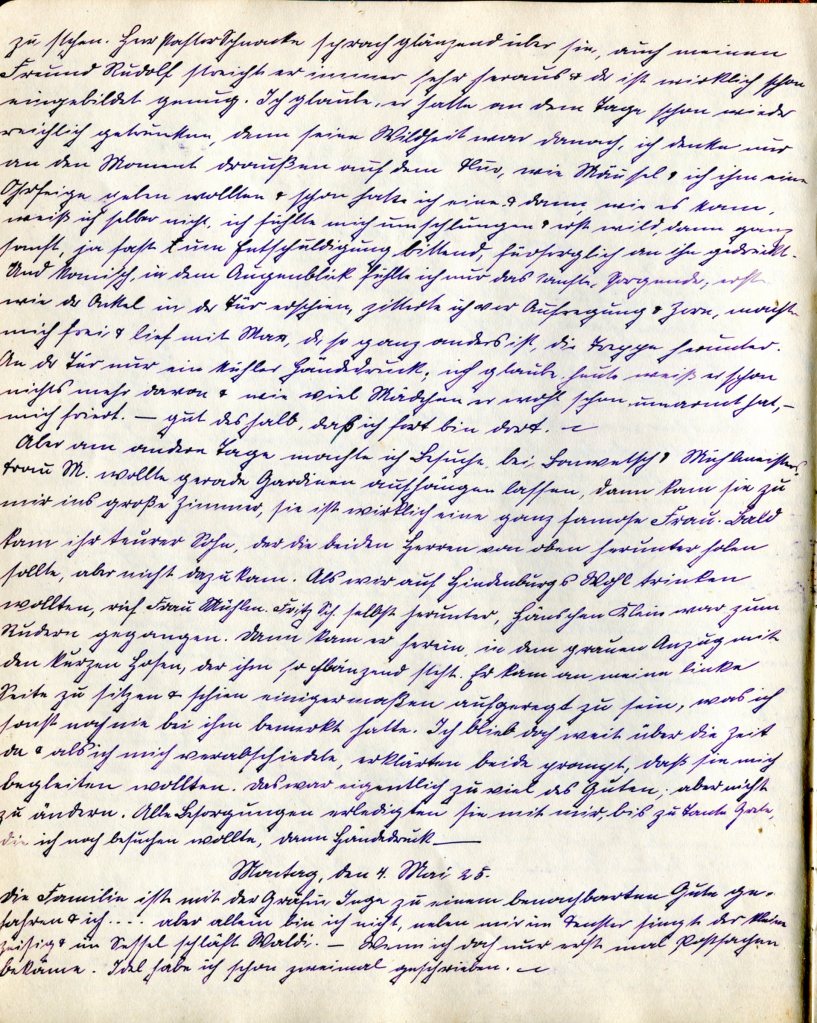 zu stehen. Herr Pastor Schnacke sprach glänzend über sie, auch meinen
Freund Rudolf streicht er immer sehr heraus & der ist wirklich schon
eingebildet genug. Ich glaube, er hatte an dem Tage schon wieder
reichlich getrunken, denn seine Wildheit war danach, ich denke nur
an den Moment draußen auf dem Flur, wie Mäusel & ich ihm eine
Ohrfeige geben wollten & schon hatte ich eine & dann, wie es kam,
weiß ich selber nicht, ich fühlte mich umschlungen & erst wild, dann ganz
sanft, ja fast um Entschuldigung bittend, fürsorglich an ihn gedrückt.
Und komisch, in dem Augenblick fühlte ich nur das sanfte, sorgende, erst
wie der Onkel in der Tür erschien, zitterte ich vor Aufregung & Zorn, machte
mich frei & lief mit Max, der so ganz anders ist, die Treppe herunter.
An der Tür nur ein kühler Händedruck; ich glaube, heute weiß er schon
nichts mehr davon & wie viel Mädchen er wohl schon umarmt hat, –
mich friert. – gut deshalb, daß ich fort bin dort. –
Aber am andern Tage machte ich Besuche bei Bonwetsch &
Frau M. wollte gerade Gardinen aufhängen lassen, dann kam sie zu
mir ins große Zimmer, sie ist wirklich eine ganz famose Frau. Bald
kam ihr teurer Sohn, der die beiden Herren von oben herunter holen
sollte, aber nicht dazu kam. Als wir auf Hindenburgs Wohl trinken
wollten, rief Frau Mühlen. Fritz Sch. selbst herunter, Hänschen Klein war zum
Rudern gegangen. Dann kam er herein, in dem grauen Anzug mit
den kurzen Hosen, der ihm so glänzend steht. Er kam an meine linke
Seite zu sitzen & schien einigermaßen aufgeregt zu sein, was ich
sonst noch nie bei ihm bemerkt hatte. Ich blieb doch weit über die Zeit
da & als ich mich verabschiedete, erklärten beide prompt, daß sie mich
begleiten wollten. Das war eigentlich zu viel des Guten, aber nicht
zu ändern. Alle Besorgungen erledigten sie mit mir, bis zu Tante Grete,
die ich noch besuchen wollte, dann Händedruck —
Montag, den 4. Mai 25.
Die Familie ist mit der Gräfin Inge zu einem benachbarten Gute ge-
fahren & ich .... aber allein bin ich nicht, neben mir im Fenster singt der kleine
Zeisig & im Sessel schläft Waldi. – Wenn ich doch nur erst mal Postsachen
bekäme. Idel habe ich schon zweimal geschrieben. –